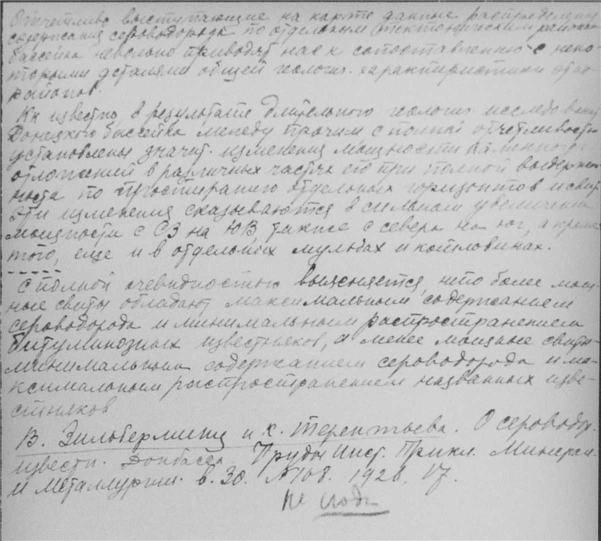 Отчетливо выступающие на карте данные распределения
содержания сероводорода по отдельным тектоническим районам
бассейна невольно приводят нас к сопоставлению с неко-
торыми деталями общей геологич. характеристики этих
районов.
Как известно в результате длительного геологич. исследования
Донецкого бассейна между прочим с полной отчетливостью
установлены значит. изменения мощности каменноуг.
отложений в различных частях его при полной выдержан-
ности по простиранию отдельных горизонтов и свит
эти изменения сказываются в сильном увеличении
мощности с СЗ на ЮВ, также с севера на юг, а кроме
того, еще и в отдельных мульдах и котловинах.
С полной очевидностью выясняется, что более мощ-
ные свиты обладают максимальным содержанием
сероводорода и минимальным распространением
битуминозных известняков, а менее мощные свиты
минимальным содержанием сероводорода и ма-
ксимальным распространением названных изве-
стняков
В. Зильберминц и х. Терентьева. О сероводор.
известн. Донбасса. Труды Инст. Прикл. Минерал.
и Металлургии. в. 30. №108. 1926. 17.